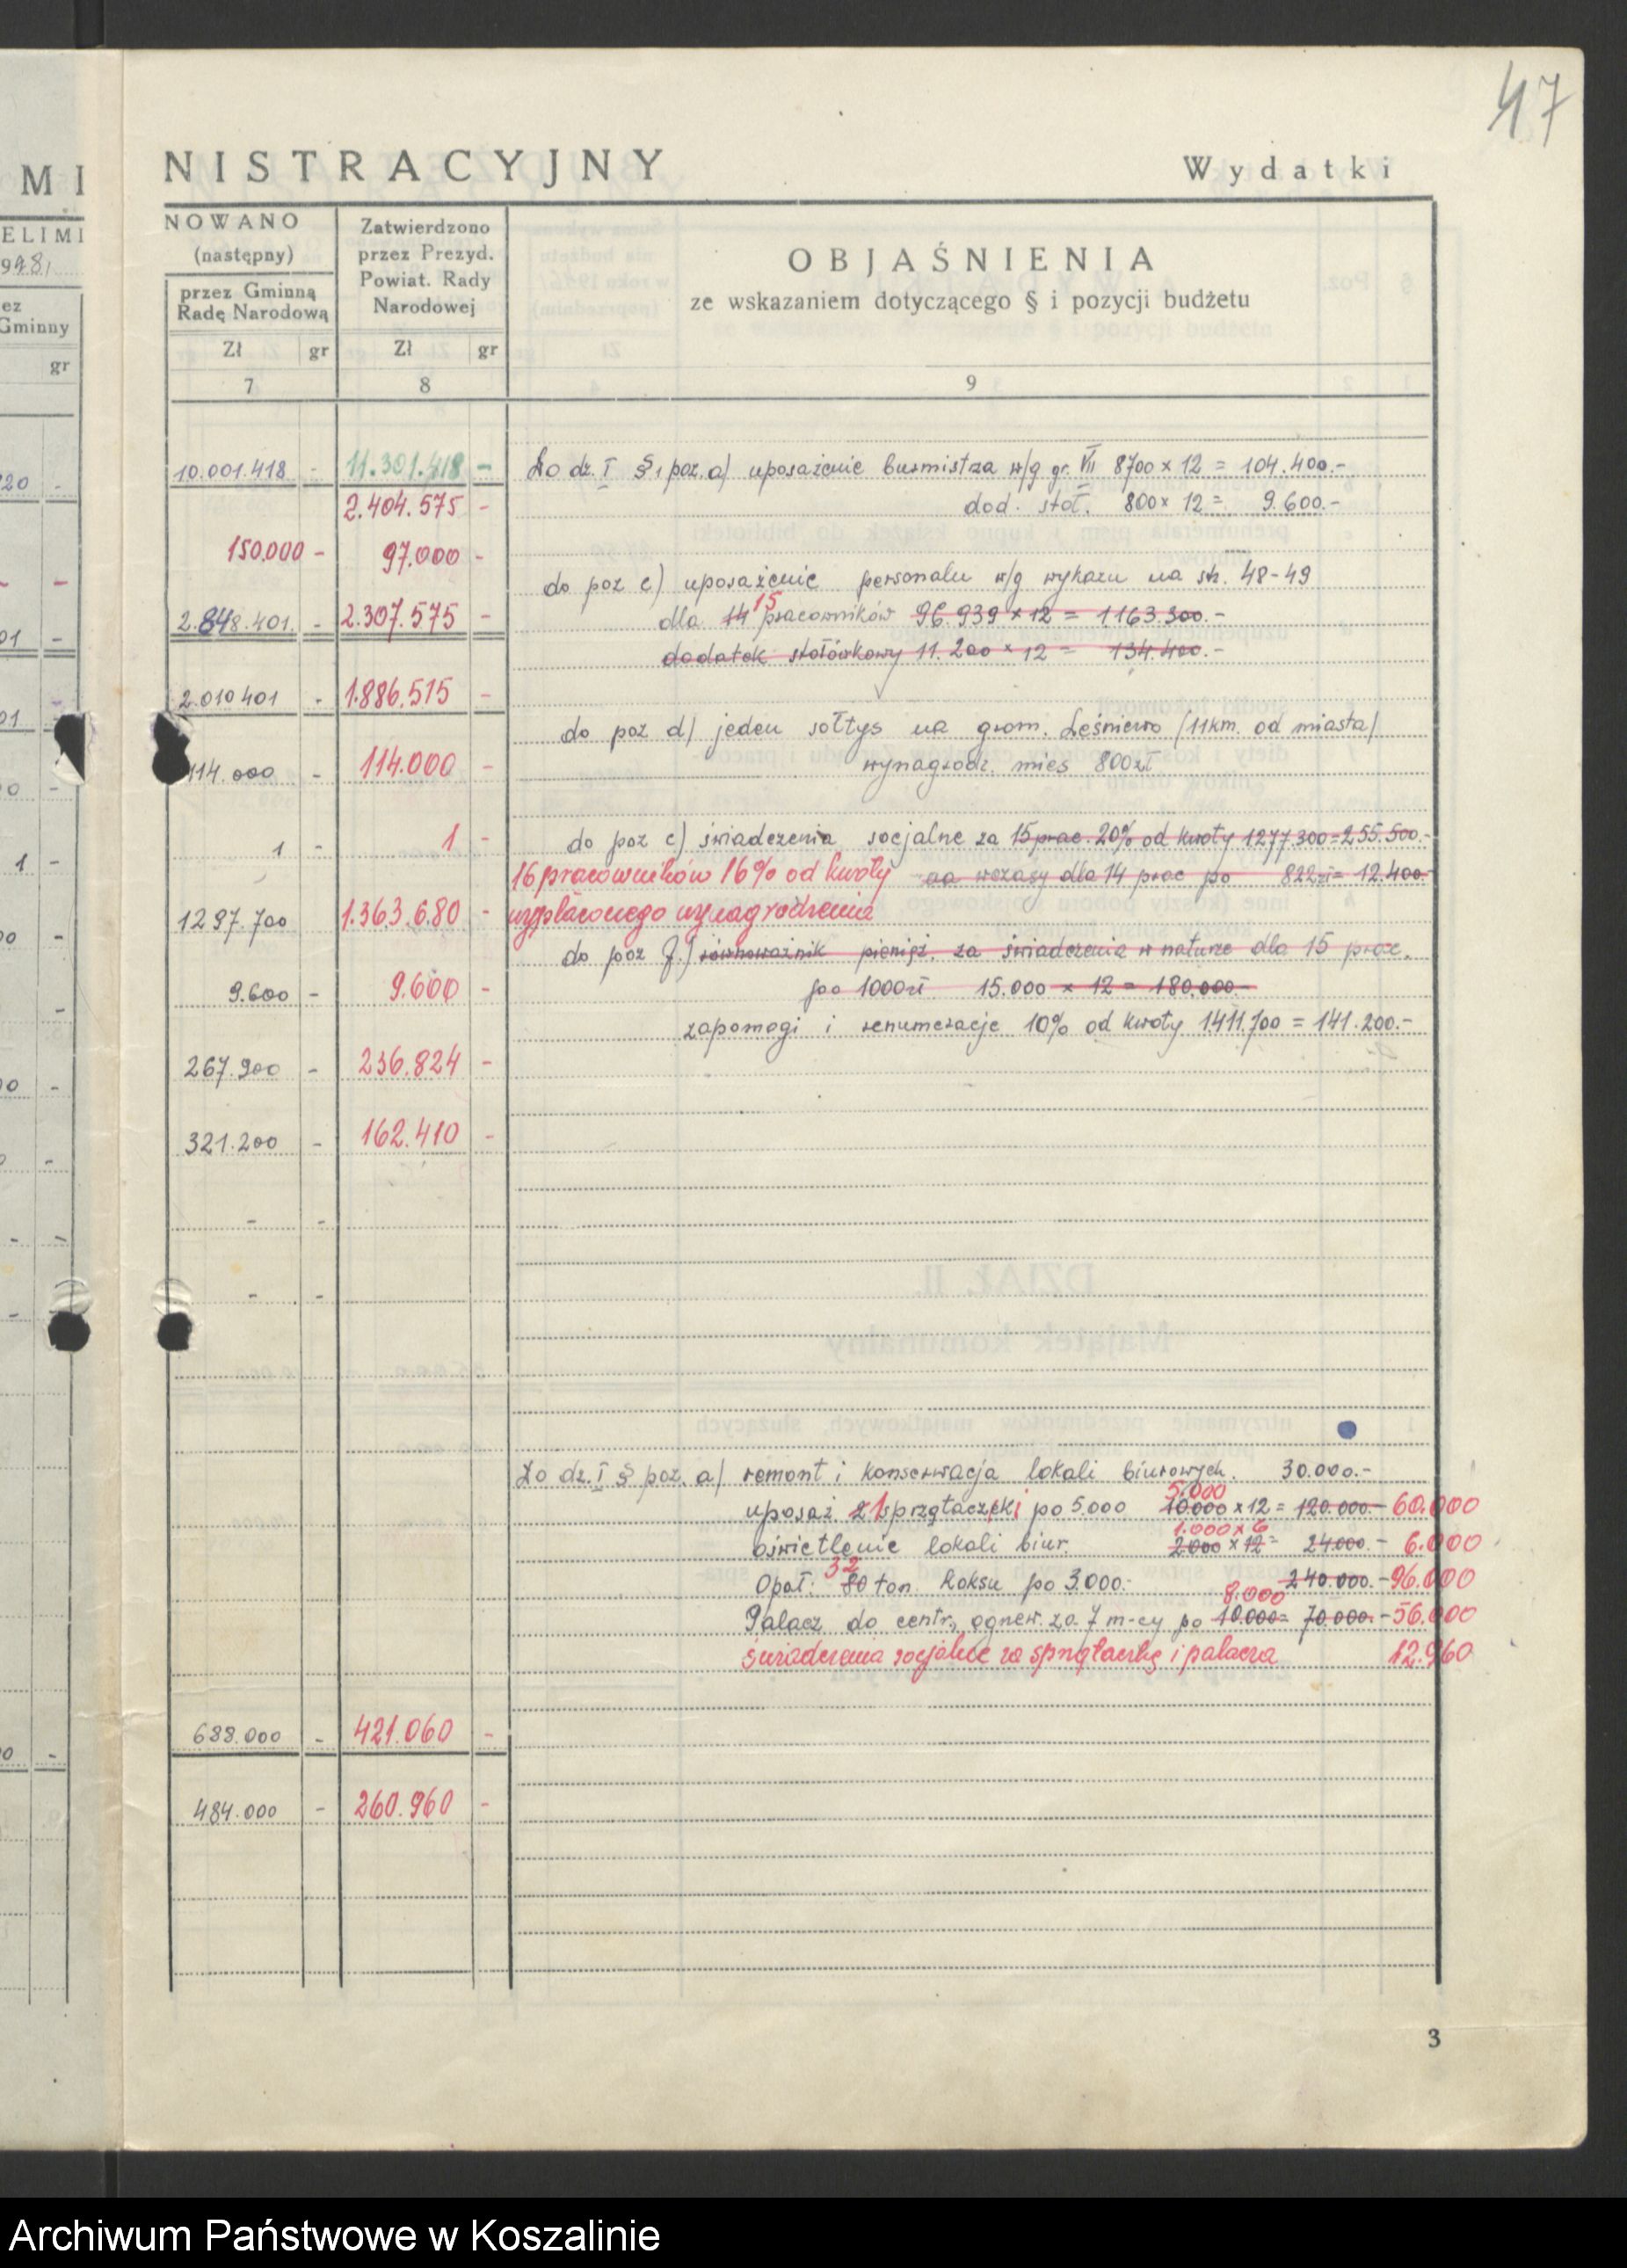 47
MI
NISTRACYJNY
Wydatki
ELIMI
1948
ez
Gminny
gr
NOWANO
(następny)
przez Gminną
Radę Narodową
Zatwierdzono
przez Prezyd.
Powiat. Rady
Narodowej
OBJAŚNIENIA
ze wskazaniem dotyczącego § i pozycji budżetu
Zł gr Zł gr
7 8 9
10.001.418 - 11.301.418 - Do dz. I § 1 poz. a) uposażenie burmistrza w/g gr. VII 8700 x 12 = 104.400.-
2.404.575 - dod. stoł. 800 x 12 = 9.600.-
150.000 - 97.000 -
do poz c) uposażenie personalu w/g wykazu na str. 48-49
2.848.401. - 2.307.575 - dla 14 15 pracowników 96.939 x 12 = 1163.300.-
dodatek stołówkowy 11.200 x 12 = 134.400.-
2.010401 - 1.886.515 -
do poz d) jeden sołtys na grom. Leśniewo (11km. od miasta)
114.000 - 114.000 - wynagrodz. mies 800zł
1 - 1 - do poz e) świadczenia socjalne za 15 prac. 20% od kwoty 1277.300=255.500.-
16 pracowników 16% od kwoty na wczasy dla 14 prac po 822zł= 12.400.-
1297.700 1.363.680 - wypłaconego wynagrodzenia
do poz f.) równoważnik pienięż. za świadczenia w naturze dla 15 prac.
9.600 - 9.600 - po 1000zł 15.000 x 12 = 180.000.-
zapomogi i renumeracje 10% od kwoty 1411.700 = 141.200.-
267.900 - 236.824 -
321.200 - 162.410 -
- -
- -
Do dz. I § poz. a) remont i konserwacja lokali biurowych. 30.000.-
uposaż 2 1 sprzątaczki po 5.000 5.000 10.000 x 12 = 120.000.- 60.000
oświetlenie lokali biur. 1.000 x 6 2000 x 12 = 24.000.- 6.000
Opał: 32 80 ton koksu po 3.000.- 240.000.- 96.000
Palacz do centr. ogrzew. za 7 m-cy po 8.000 10.000= 70.000.- 56.000
świadczenia socjalne za sprzątaczkę i palacza 12.960
688.000 - 421.060 -
484.000 - 260.960 -
3
Archiwum Państwowe w Koszalinie